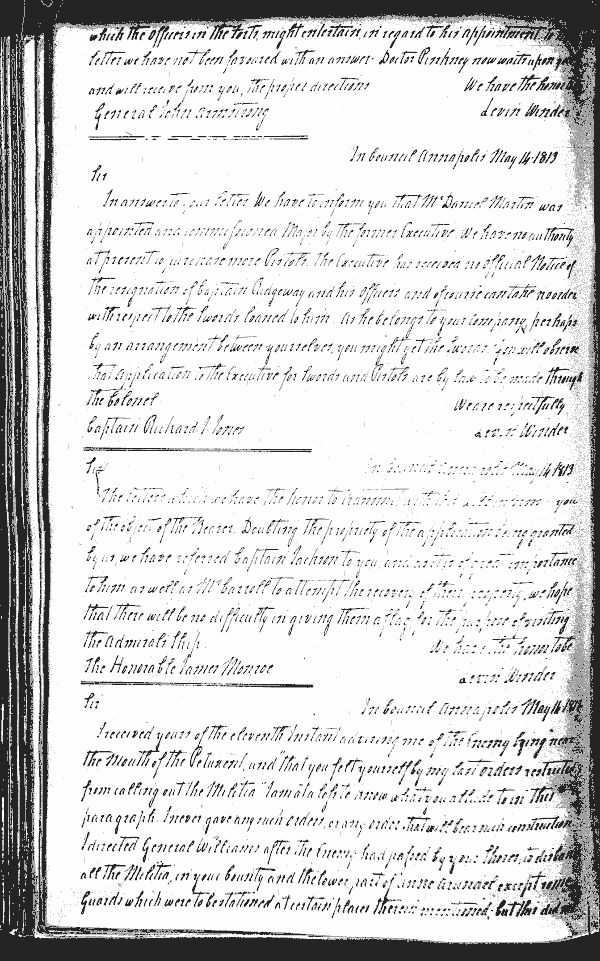 which the Officers in the Forts, might entertain, in regard to his appointment, to
letter we have not been favoured with an answer. Doctor Pinkney now waits upon you
and will receive from you, the proper directions We have the honor
General John Armstrong Levin Winder
In Council Annapolis May 14. 1813
Sir
In answer to your letter We have to inform you that Mr Daniel Martin was
appointed and commissioned Major by the former Executive. We have no authority
at present to purchase more Pistols. The Executive has received no official Notice of
the resignation of Captain Ridgeway and his Officers and of course can take no order
with respect to the Swords loaned to him. As he belongs to your Company, perhaps
by an arrangement between yourselves, you might get the Swords. You will observe
that application to the Executive for Swords and Pistols are by Law to be made through
the Colonel We are respectfully
Captain Richard I Jones Levin Winder
Sir In Council Annapolis May 14 1813
The letters which we have the honor to transmit with this will inform you
of the object of the Bearer. Doubting the propriety of the application being granted
by us, we have referred Captain Jackson to you, and as it is of great importance
to him as well as Mr Carroll to attempt the recovery of their property, we hope
that there will be no difficulty in giving them a flag for the purpose of visiting
the Admirals Ship. We have the honor to be
The Honorable James Monroe Levin Winder
Sir In Council Annapolis May 14
I received yours of the eleventh Instant advising me of the Enemy lying near
the Mouth of the Patuxent, and "that you felt yourself by my last orders restricted
from calling out the Militia" I am at a loss to know what you allude to in this
paragraph. I never gave any such orders, or any order that will bear such construction
I directed General Williams after the Enemy had passed by your Shores, to disband
all the Militia, in your County and the lower part of Anne Arundel except some
Guards which were to be stationed at certain places therein mentioned, but this did not